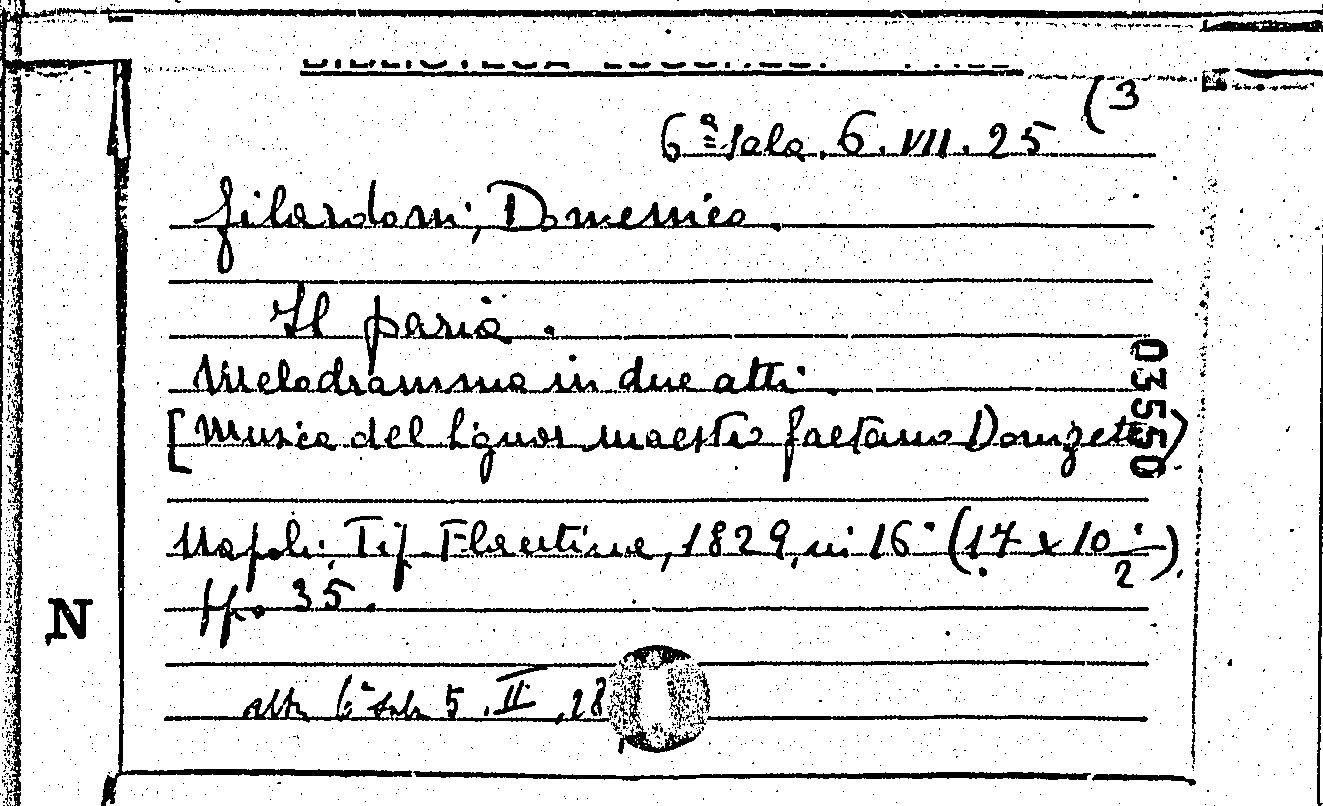 BIBLIOTECA LUCCHESI
(3
6ª Sala. 6. VII. 25
Gilardoni, Domenico.
Il paria.
Melodramma in due atti.
[Musica del Signor maestro Gaetano Donizetti]
03550
Napoli, Tip. Flautina, 1829, in 16° (17 x 10 1/2).
pp. 35.
N
altr. 6ª Sala 5. II. 28